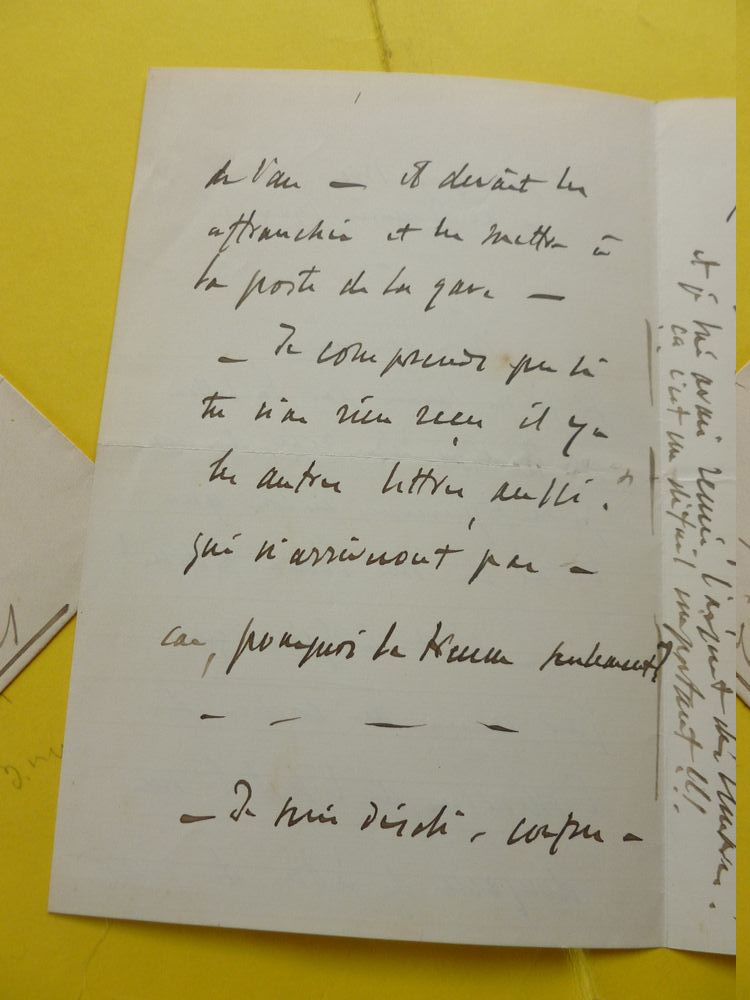 de Van — Il devait les
affranchir et les mettre à
la poste de la gare —
— Je comprends que si
tu n'as rien reçu il y a
les autres lettres, aussi.
qui n'arriveront pas —
car, pourquoi la tienne seulement?
— — — —
— Je suis désolé, confus —
et je lui avais remis l'argent des timbres.
ça c'est un détail important !!!